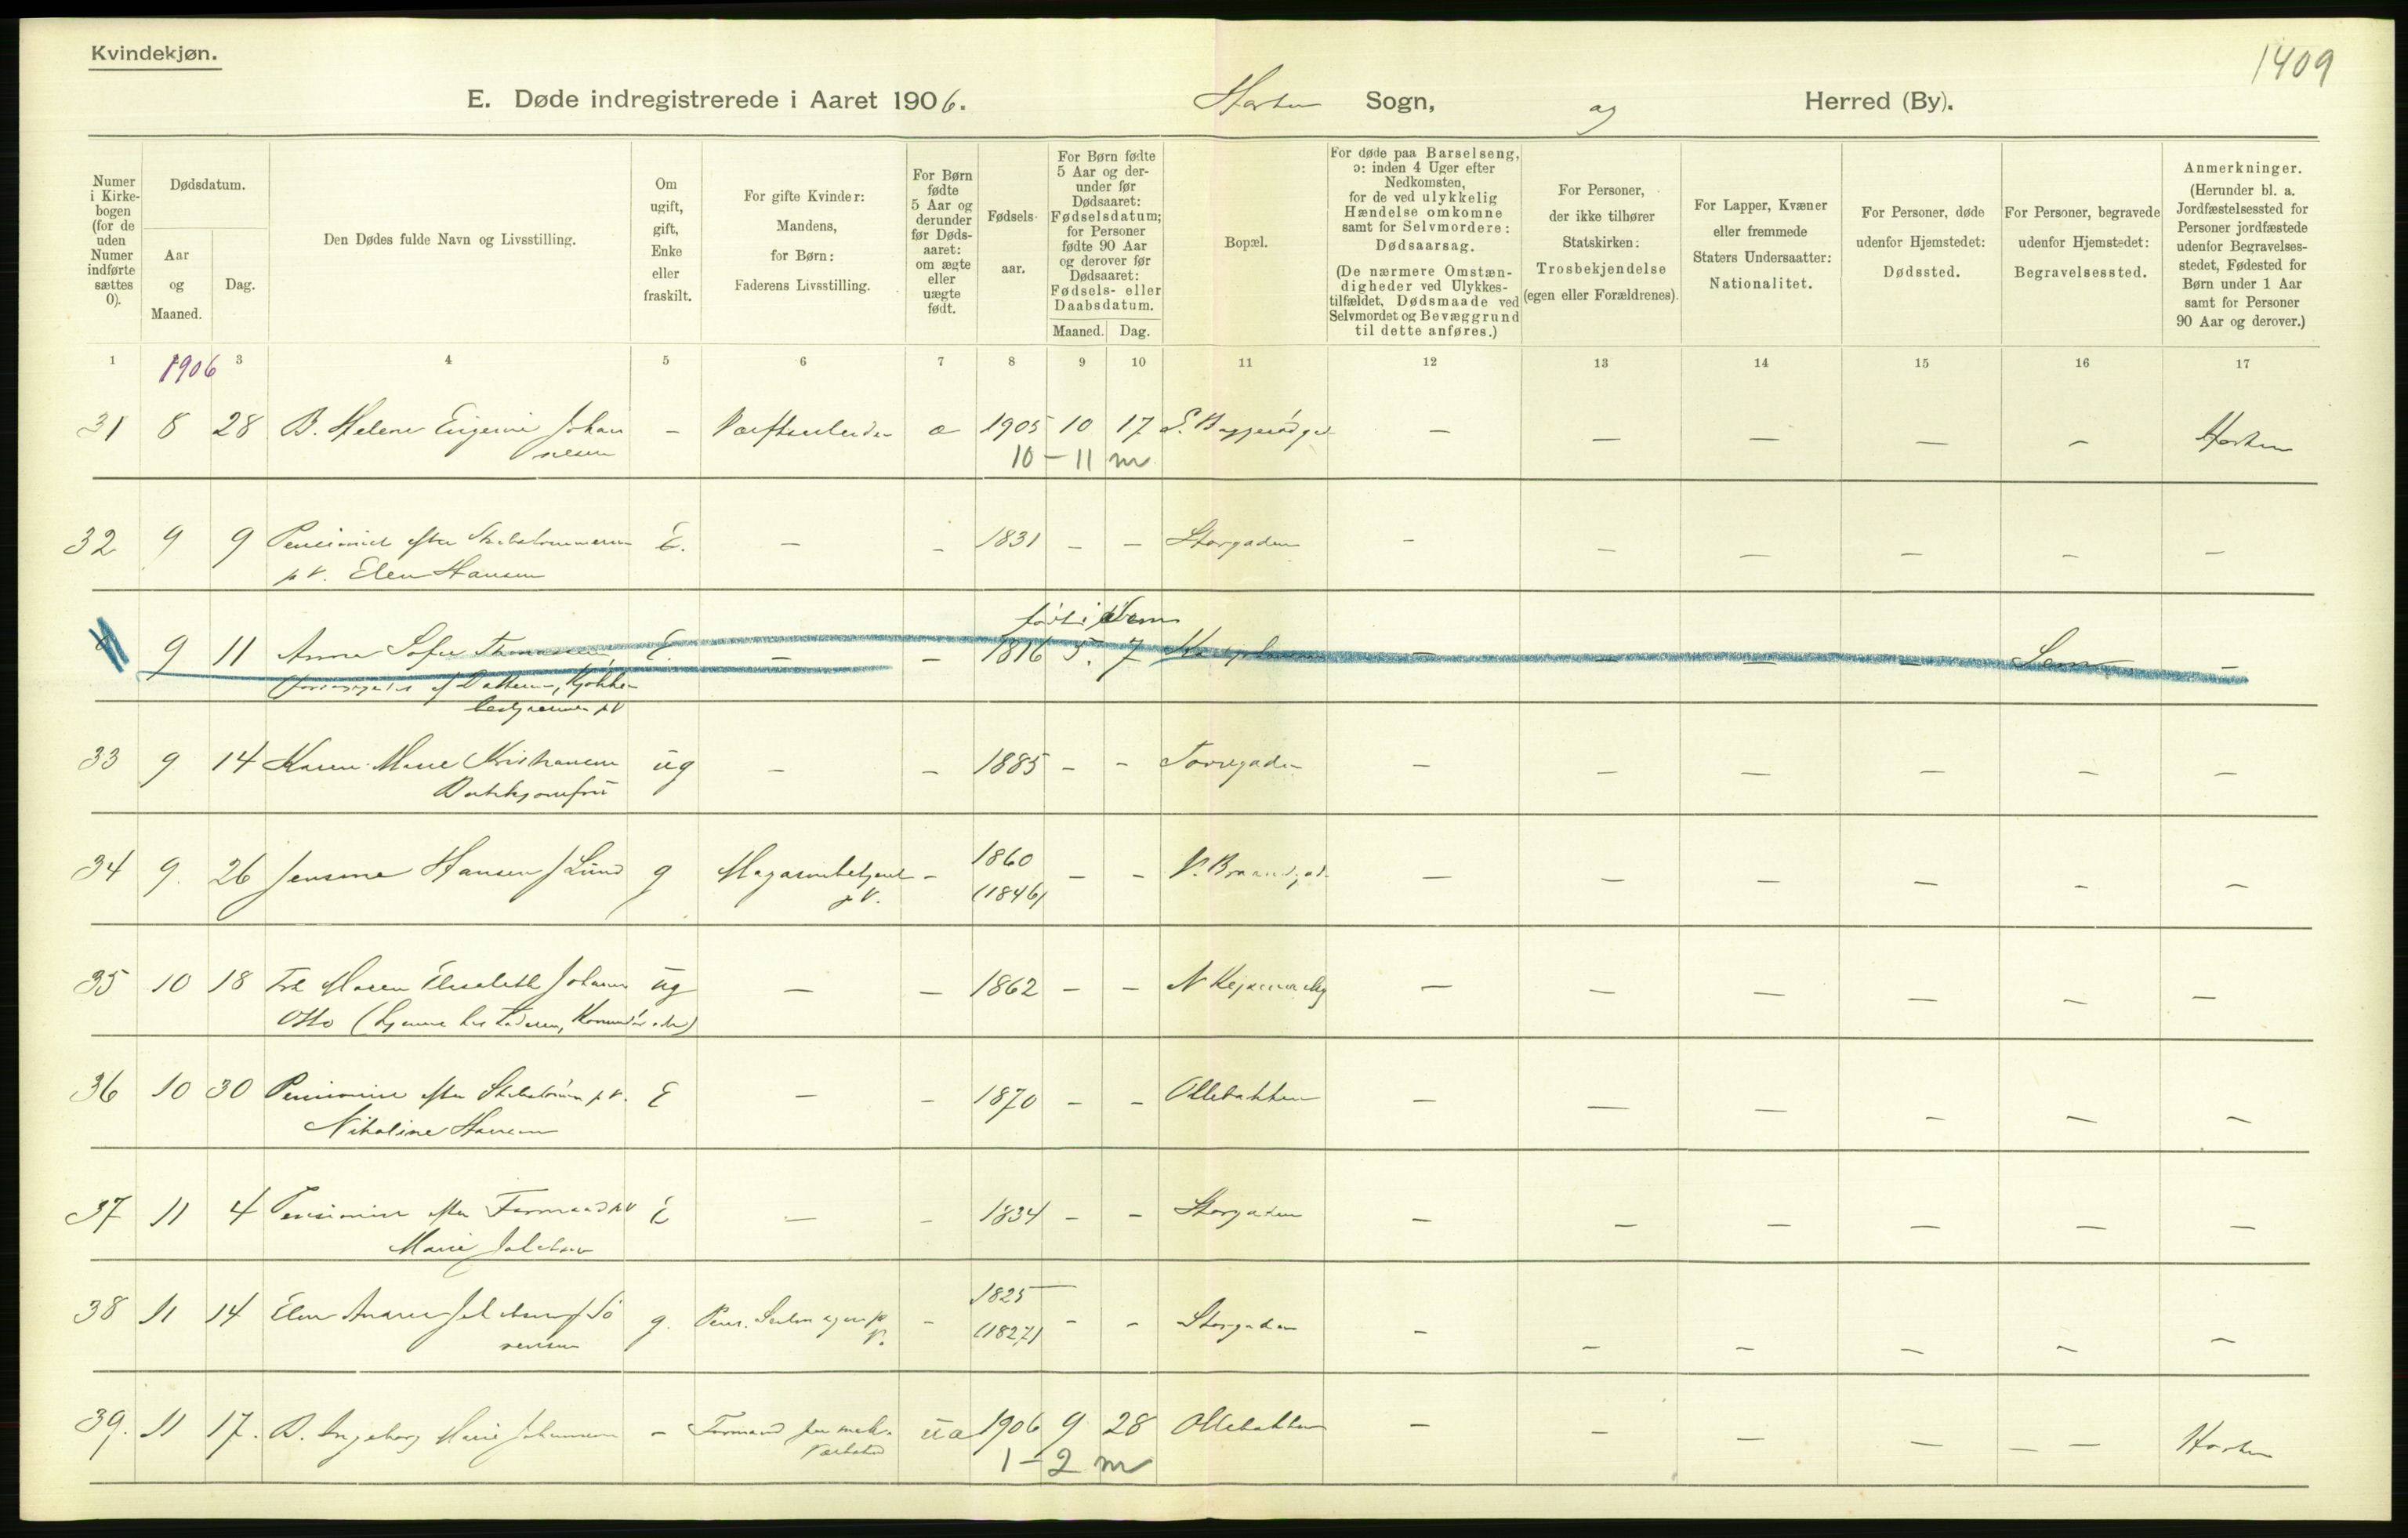 Kvindekjøn.
1409
E. Døde indregistrerede i Aaret 1906. Horten Sogn, og Herred (By).
Numer i Kirkebogen (for de uden Numer indførte sættes 0).
Dødsdatum.
Aar og Maaned.
Dag.
Den Dødes fulde Navn og Livsstilling.
Om ugift, gift, Enke eller fraskilt.
For gifte Kvinder: Mandens, for Børn: Faderens Livsstilling.
For Børn fødte 5 Aar og derunder før Dødsaaret: om ægte eller uægte født.
Fødselsaar.
For Børn fødte 5 Aar og derunder før Dødsaaret: Fødselsdatum; for Personer fødte 90 Aar og derover før Dødsaaret: Fødsels- eller Daabsdatum.
Maaned. Dag.
Bopæl.
For døde paa Barselseng, ɔ: inden 4 Uger efter Nedkomsten, for de ved ulykkelig Hændelse omkomne samt for Selvmordere: Dødsaarsag.
(De nærmere Omstændigheder ved Ulykkestilfældet, Dødsmaade ved Selvmordet og Bevæggrund til dette anføres.)
For Personer, der ikke tilhører Statskirken: Trosbekjendelse (egen eller Forældrenes).
For Lapper, Kvæner eller fremmede Staters Undersaatter: Nationalitet.
For Personer, døde udenfor Hjemstedet: Dødssted.
For Personer, begravede udenfor Hjemstedet: Begravelsessted.
Anmerkninger.
(Herunder bl. a. Jordfæstelsessted for Personer jordfæstede udenfor Begravelsesstedet, Fødested for Børn under 1 Aar samt for Personer 90 Aar og derover.)
1 3 4 5 6 7 8 9 10 11 12 13 14 15 16 17
1906
31 8 28 B. Helene Eugenie Johan - æ 1905 10 17 - - - - - Horten
nesen 10 - 11 m
32 9 9 Pensionist efter E. - - 1831 - - Storgaden - - - - - -
p V. Elen Hansen
født i Sem
9 11 Anna Sofie Thomassen E. - - 1816 5. 7 - - - - Sem -
af Datteren, Kjøkken
p V
33 9 14 Karen Marie Kristiansen ug - - 1885 - - - - - - - -
34 9. 26 Jensine Hansen f Lund g - 1860 - - - - - - - -
p V. (1846)
35 10 18 Frk Maren Elisabeth Johanne ug - - 1862 - - - - - - - -
Otto (hjemme hos Faderen,
36 10 30 Pensionist efter p V. E - - 1870 - - Ollebakken - - - - - -
Nikoline Hansen
37 11 4 Pensionist efter Formand p V E - - 1834 - - Storgaden - - - - - -
Marie Jakobsen
38 11 14 Elen Jakobsen f Sö g. Pens. p - 1825 - - Storgaden - - - - - -
rensen V. (1827)
39. 11 17. B. Ingeborg Marie Johannesen - Formand mek. ua 1906 9 28 Ollebakken - - - - - - Horten
1 - 2 m